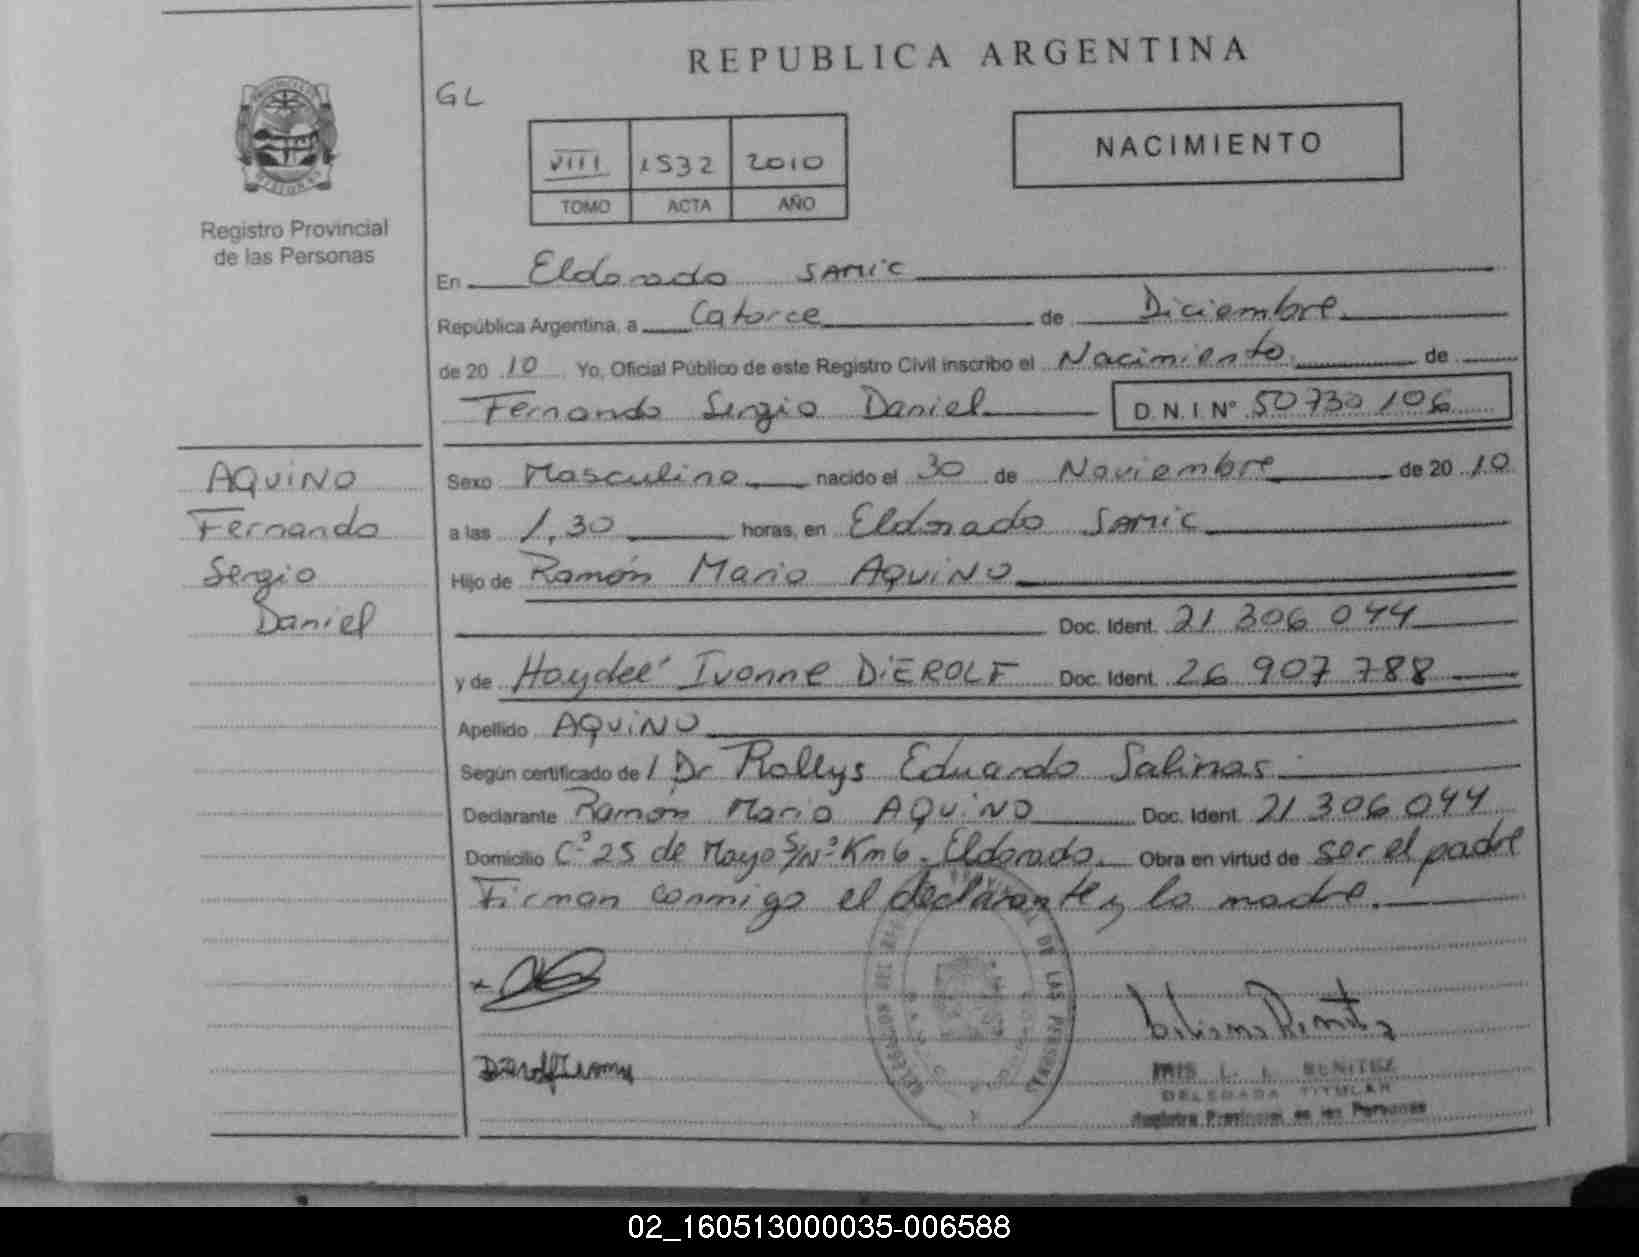 REPUBLICA ARGENTINA
GL
NACIMIENTO
VIII 1532 2010
TOMO ACTA AÑO
Registro Provincial
de las Personas
En Eldorado SAMIC
República Argentina, a Catorce de Diciembre
de 20 10 Yo, Oficial Público de este Registro Civil inscribo el Nacimiento de
Fernando Sergio Daniel D. N. I. N° 50 730 106
AQUINO
Fernando
Sergio
Daniel
Sexo Masculino nacido el 30 de Noviembre de 20 10
a las 1,30 horas, en Eldorado SAMIC
Hijo de Ramón Mario AQUINO
Doc. Ident. 21 306 044
y de Haydeé Ivonne DiEROLF Doc. Ident. 26 907 788
Apellido AQUINO
Según certificado de / Dr Rollys Eduardo Salinas
Declarante Ramón Mario AQUINO Doc. Ident. 21 306 044
Domicilio C° 25 de Mayo S/N° Km 6. Eldorado. Obra en virtud de ser el padre
Firman conmigo el declarante y la madre.
DE LAS PERSONAS
IRIS L. I. BENITEZ
DELEGADA TITULAR
Registro Provincial de las Personas
02_160513000035-006588